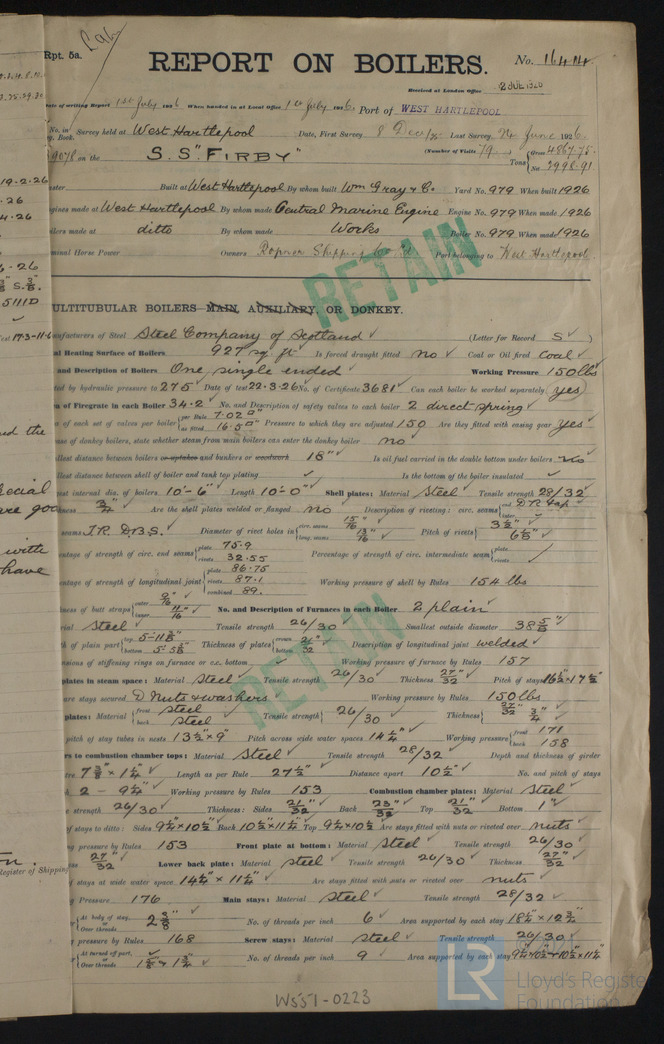 Rpt. 5a.
REPORT ON BOILERS.
No. 16414
Received at London Office 2 JUL 1926
Date of writing Report 1st July 1926 When handed in at Local Office 1st July 1926. Port of WEST HARTLEPOOL
No. in Survey held at West Hartlepool Date, First Survey 8 Dec/25 Last Survey 24 June 1926
Reg. Book.
9078 on the S.S "FIRBY" (Number of Visits 79) Tons Gross 4867.75
Net 2998.91
Built at West Hartlepool By whom built Wm Gray & Co. Yard No. 979 When built 1926
Engines made at West Hartlepool By whom made Central Marine Engine Engine No. 979 When made 1926
Boilers made at ditto By whom made Works Boiler No. 979 When made 1926
Nominal Horse Power Owners Ropner Shipping Co. Ld Port belonging to West Hartlepool
RETAIN
MULTITUBULAR BOILERS MAIN, AUXILIARY, OR DONKEY.
Manufacturers of Steel Steel Company of Scotland (Letter for Record S)
Total Heating Surface of Boilers 927 sq. ft Is forced draught fitted no Coal or Oil fired Coal
and Description of Boilers One single ended Working Pressure 150 lbs
Tested by hydraulic pressure to 275 Date of test 22.3.26 No. of Certificate 3681 Can each boiler be worked separately yes
Area of Firegrate in each Boiler 34.2 No. and Description of safety valves to each boiler 2 direct spring
Area of each set of valves per boiler per Rule 7.02 as fitted 16.5 Pressure to which they are adjusted 150 Are they fitted with easing gear yes
In case of donkey boilers, state whether steam from main boilers can enter the donkey boiler no
Smallest distance between boilers or uptakes and bunkers or woodwork 18" Is oil fuel carried in the double bottom under boilers no
Smallest distance between shell of boiler and tank top plating Is the bottom of the boiler insulated
Largest internal dia. of boilers 10'-6" Length 10'-0" Shell plates: Material Steel Tensile strength 28/32
Thickness 3/4" Are the shell plates welded or flanged no Description of riveting: circ. seams end DR Lap
inter.
long. seams T.R. D.B.S. Diameter of rivet holes in circ. seams 15/16" long. seams 13/16" Pitch of rivets 3 1/2" 6 1/8"
Percentage of strength of circ. end seams plate 75.9 rivets 32.55 Percentage of strength of circ. intermediate seam plate rivets
Percentage of strength of longitudinal joint plate 86.75 rivets 87.1 combined 89. Working pressure of shell by Rules 154 lbs
Thickness of butt straps outer 9/16" inner 11/16" No. and Description of Furnaces in each Boiler 2 plain
Material Steel Tensile strength 26/30 Smallest outside diameter 38 5/8"
Length of plain part top 5-11 3/8" bottom 5-5 5/8" Thickness of plates crown bottom 21/32" Description of longitudinal joint welded
Dimensions of stiffening rings on furnace or c.c. bottom Working pressure of furnace by Rules 157
End plates in steam space: Material Steel Tensile strength 26/30 Thickness 27/32" Pitch of stays 16 1/2" x 17 1/2"
How are stays secured D Nuts & washers Working pressure by Rules 150 lbs
Tube plates: Material front Steel back Steel Tensile strength 26/30 Thickness 27/32" 3/4"
Mean pitch of stay tubes in nests 13 1/2" x 9" Pitch across wide water spaces 14 1/4" Working pressure front 171 back 158
Girders to combustion chamber tops: Material Steel Tensile strength 28/32 Depth and thickness of girder
at centre 7 3/8" x 1 1/4" Length as per Rule 27 1/2" Distance apart 10 1/2" No. and pitch of stays
2 - 9 1/4" Working pressure by Rules 153 Combustion chamber plates: Material Steel
Tensile strength 26/30 Thickness: Sides 21/32" Back 23/32" Top 21/32" Bottom 1"
Pitch of stays to ditto: Sides 9 1/4" x 10 1/2" Back 10 1/2" x 11 1/4" Top 9 1/4" x 10 1/2" Are stays fitted with nuts or riveted over nuts
Working pressure by Rules 153 Front plate at bottom: Material Steel Tensile strength 26/30
Thickness 27/32 Lower back plate: Material Steel Tensile strength 26/30 Thickness 27/32"
Pitch of stays at wide water space 14 1/4" x 11 1/4" Are stays fitted with nuts or riveted over nuts
Working Pressure 176 Main stays: Material Steel Tensile strength 28/32
At body of stay, Over threads 2 3/8" No. of threads per inch 6 Area supported by each stay 18 1/4" x 12 3/4"
Working pressure by Rules 168 Screw stays: Material Steel Tensile strength 26/30
At turned off part, Over threads 1 5/8" & 1 3/4" No. of threads per inch 9 Area supported by each stay 9 1/4" x 10 1/2" & 10 1/2" x 11 1/4"
RETAIN
W551-0223
LR
Lloyd's Register
Foundation